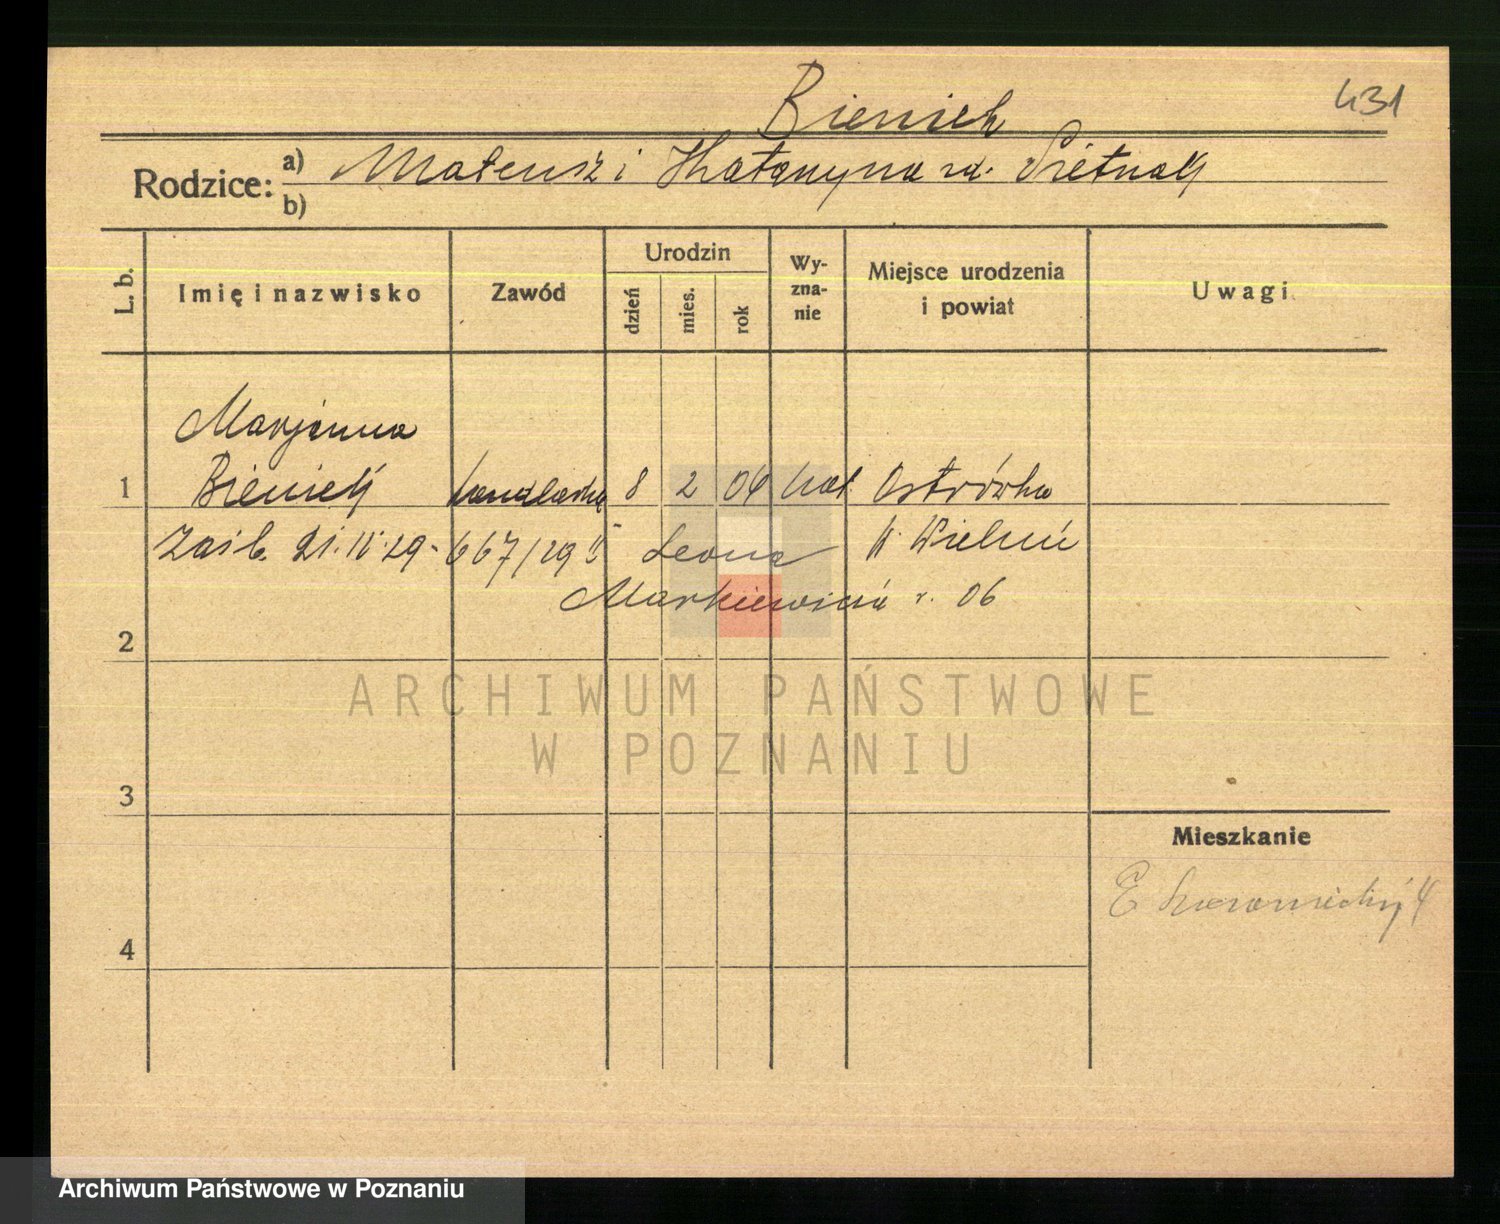 431
Bieniek
Rodzice: a) Mateusz i Katarzyna zd. Pietrzak
b)
L. b. Imię i nazwisko Zawód Urodzin dzień mies. rok Wy-zna-nie Miejsce urodzenia i powiat Uwagi
Marjanna
1 Bieniek 8 2 04 kat. Ostrówka
Zaśl. 21.IV.29 - 667/29 II Leona p. Wieluń
Markiewicza r. 06
2
ARCHIWUM PAŃSTWOWE
W POZNANIU
3
Mieszkanie
4
Archiwum Państwowe w Poznaniu